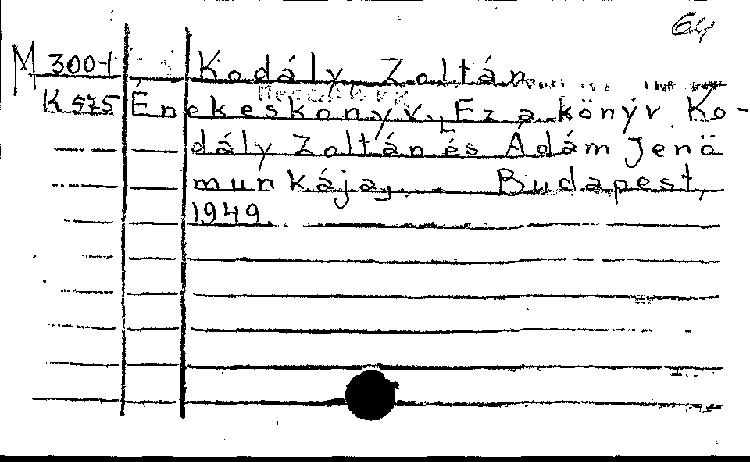 64
M 300-1 Kodály Zoltán
K 575 Énekeskönyv. Ez a könyv Ko-
dály Zoltán és Ádám Jenö
munkája. Budapest,
1949.